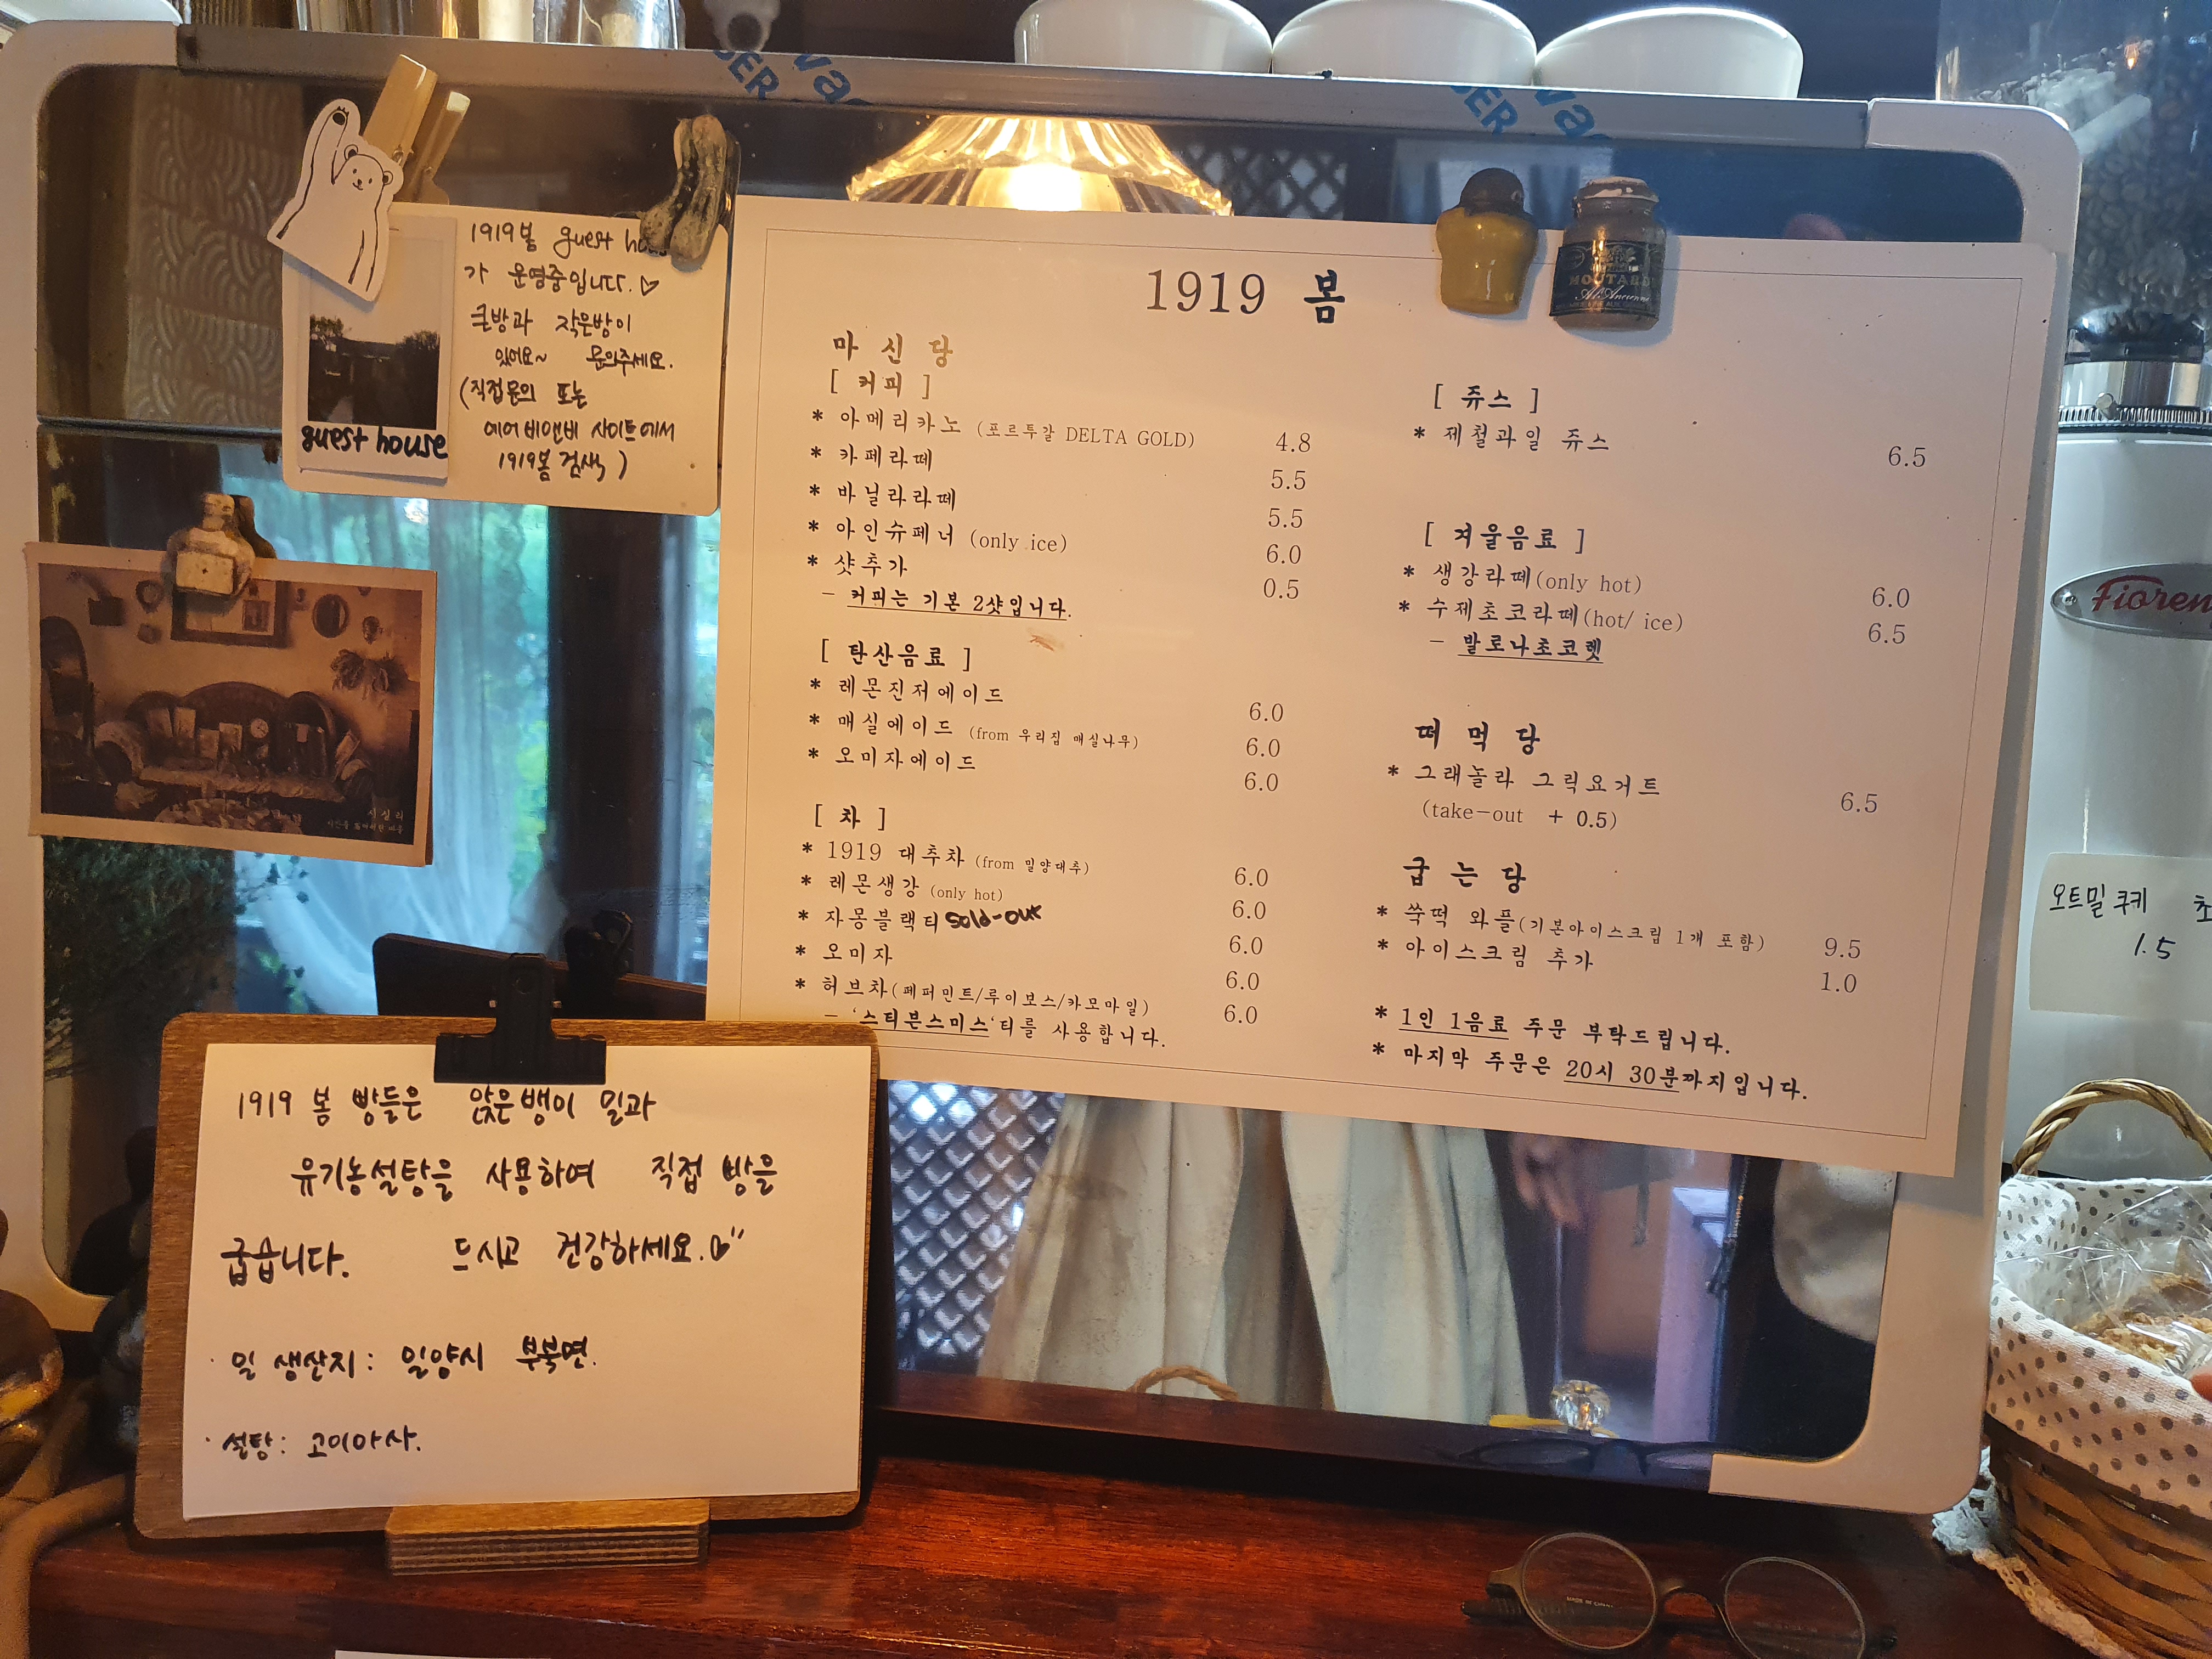 1919봄 guest
가 운영중입니다.♡
큰방과 작은방이
있어요~ 문의주세요.
(직접문의 또는
에어비앤비 사이트에서
1919봄 검색)
guest house
시실리
1919 봄
마신당
[ 커피 ]
* 아메리카노 (포르투갈 DELTA GOLD) 4.8
* 카페라떼 5.5
* 바닐라라떼 5.5
* 아인슈페너 (only ice) 6.0
* 샷추가 0.5
- 커피는 기본 2샷입니다.
[ 탄산음료 ]
* 레몬진저에이드 6.0
* 매실에이드 (from 우리집 매실나무) 6.0
* 오미자에이드 6.0
[ 차 ]
* 1919 대추차 (from 밀양대추) 6.0
* 레몬생강 (only hot) 6.0
* 자몽블랙티 sold-out 6.0
* 오미자 6.0
* 허브차(페퍼민트/루이보스/카모마일) 6.0
- '스티븐스미스'티를 사용합니다.
[ 쥬스 ]
* 제철과일 쥬스 6.5
[ 겨울음료 ]
* 생강라떼(only hot) 6.0
* 수제초코라떼(hot/ ice) 6.5
- 발로나초코렛
떠먹당
* 그래놀라 그릭요거트 6.5
(take-out + 0.5)
굽는당
* 쑥떡 와플(기본아이스크림 1개 포함) 9.5
* 아이스크림 추가 1.0
* 1인 1음료 주문 부탁드립니다.
* 마지막 주문은 20시 30분까지입니다.
MOUTARDE
Al'Ancienne
Fioren
오트밀 쿠키 초
1.5
1919 봄 빵들은 앉은뱅이 밀과
유기농설탕을 사용하여 직접 빵을
굽습니다. 드시고 건강하세요.♡"
· 밀 생산지: 밀양시 부북면.
· 설탕: 고이아사.